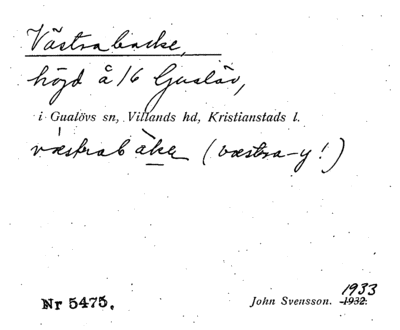 Västrabacke,
höjd å 16 Gualöv,
i Gualövs sn, Villands hd, Kristianstads l.
væstrabàkə (væstra-y!)
1933
Nr 5475. John Svensson. 1932.